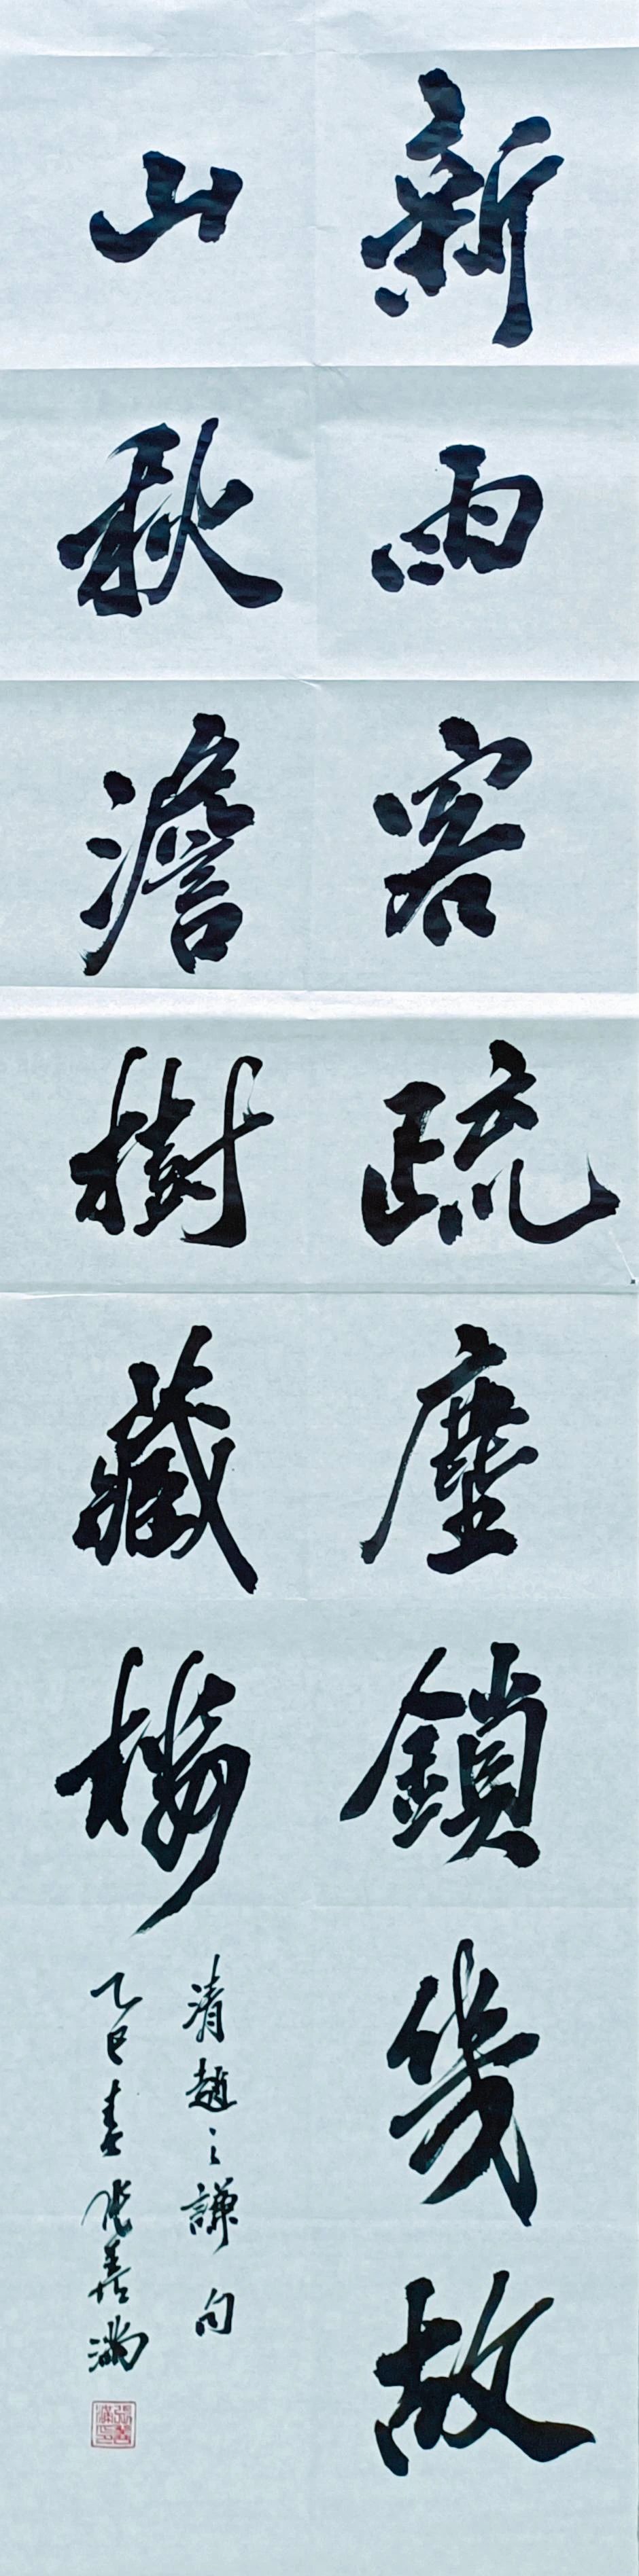 新雨客疏塵鎖幾故
山秋澹樹藏樓
清趙之謙句
乙巳春張善滿